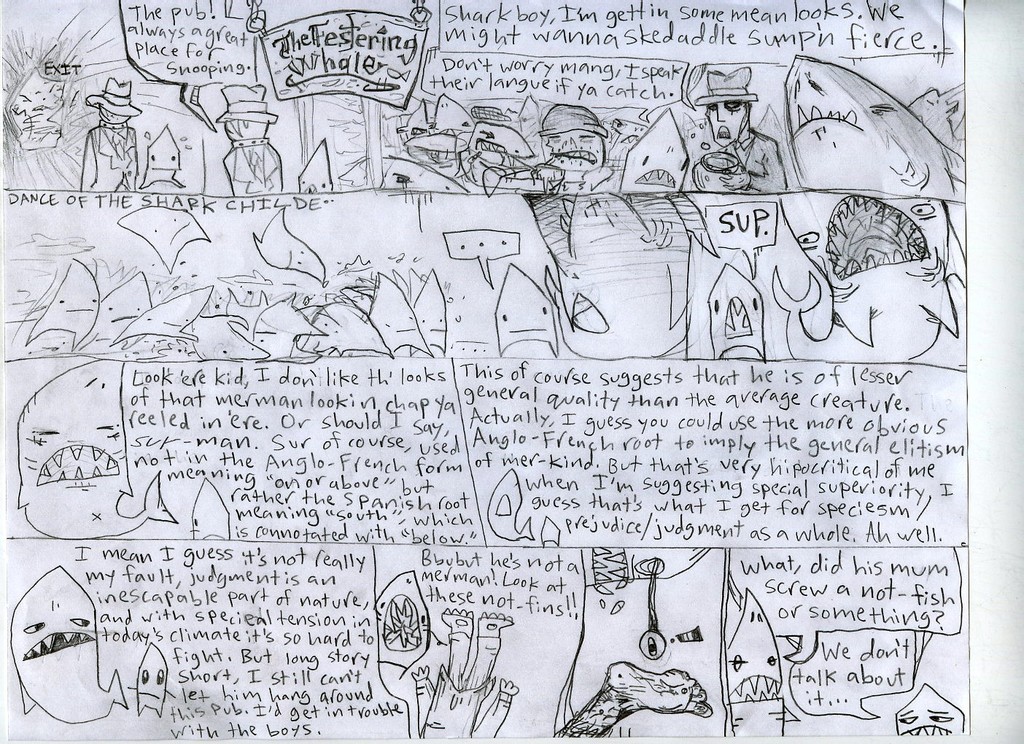 The pub!
always a great
place for
snooping.
EXIT
The Festering
Whaler
Shark boy, I'm gettin some mean looks. We
might wanna skedaddle sump'n fierce.
Don't worry mang, I speak
their langue if ya catch.
DANCE OF THE SHARK CHILDE..
...
SUP.
Look 'ere kid, I don't like th' looks
of that merman lookin chap ya
reeled in 'ere. Or should I say,
sur-man. Sur of course, used
not in the Anglo-French form
meaning "on or above" but
rather the Spanish root
meaning "south", which
is connotated with "below."
This of course suggests that he is of lesser
general quality than the average creature.
Actually, I guess you could use the more obvious
Anglo-French root to imply the general elitism
of mer-kind. But that's very hipocritical of me
when I'm suggesting special superiority, I
guess that's what I get for speciesm/
prejudice/judgment as a whole. Ah well.
I mean I guess it's not really
my fault, judgment is an
inescapable part of nature,
and with special tension in
today's climate it's so hard to
fight. But long story
short, I still can't
let him hang around
this pub. I'd get in trouble
with the boys.
Bbubut he's not a
merman! Look at
these not-fins!!
what, did his mum
screw a not-fish
or something?
We don't
talk about
it...